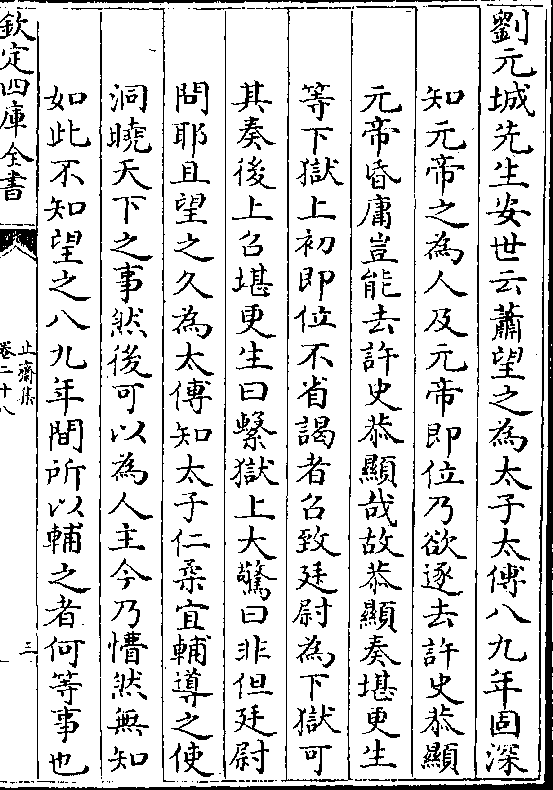 劉元城先生安世云蕭望之為太子太傅八九年固深
知元帝之為人及元帝即位乃欲逐去許史恭顯
元帝昏庸豈能去許史恭顯哉故恭顯奏堪更生
等下獄上初即位不省謁者召致廷尉為下獄可
其奏後上召堪更生曰繫獄上大驚曰非但廷尉
問耶且望之久為太傅知太子仁柔宜輔導之使
洞曉天下之事然後可以為人主今乃懵然無知
如此不知望之八九年間所以輔之者何等事也
欽定四庫全書
止齋集
卷二十八
三